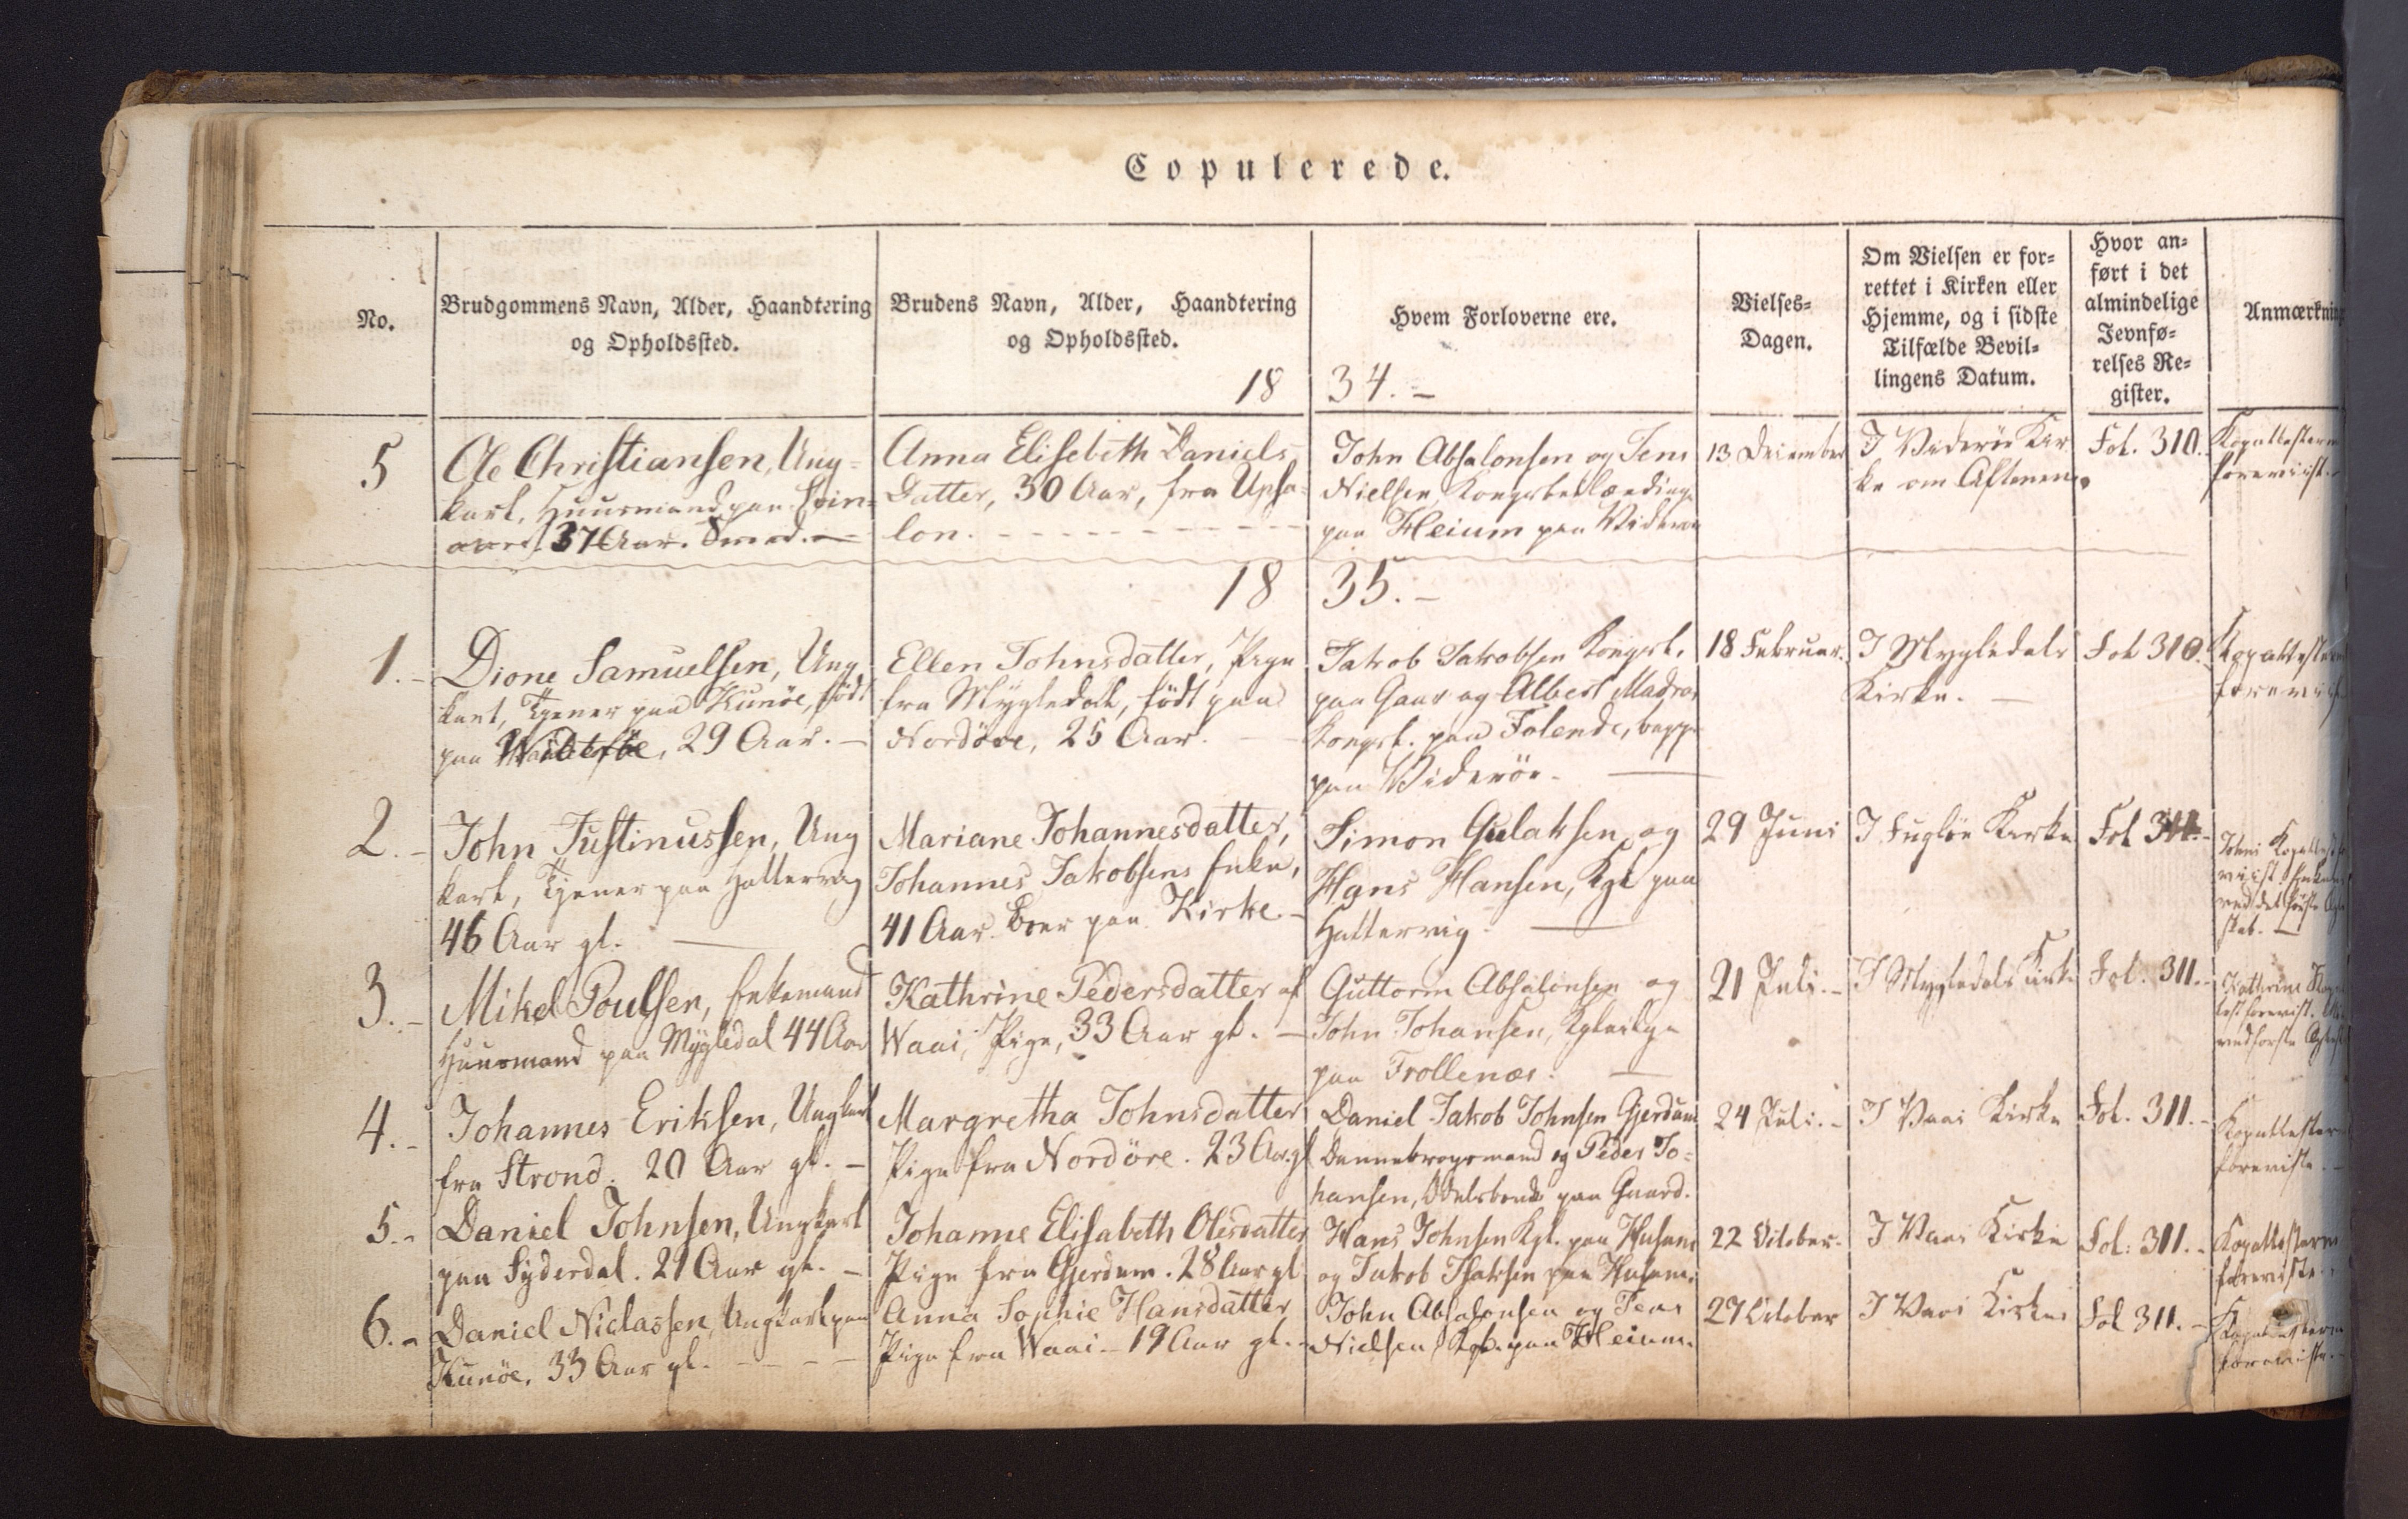 Copulerede.
No.
Brudgommens Navn, Alder, Haandtering
og Opholdssted.
Brudens Navn, Alder, Haandtering
og Opholdssted.
Hvem Forloverne ere.
Vielses-
Dagen.
Om Vielsen er for-
rettet i Kirken eller
Hjemme, og i sidste
Tilfælde Bevil-
lingens Datum.
Hvor an-
ført i det
almindelige
Jevnfø-
relses Re-
gister.
Anmærkning
18 34.-
5
Ole Christiansen, Ung-
karl, Huusmand paa
37 Aar. Smed.
Anna Elisebeth Daniels
Datter, 30 Aar, fra
John Absalonsen og Jens
Nielsen
paa Heium paa Viderøe
13 December
I Viderøe Kir
ke om Aftenen.
Fol. 310.
Kopattesterne
foreviist.
18 35.-
1.-
Dione Samuelsen, Ung
karl, Tjener paa Kunøe, født
paa 29 Aar.-
Ellen Johnsdatter, Pige
fra Mygledal, født paa
Nordöre, 25 Aar.
Jakob Jakobsen Kongsb.
paa Gaar og Albert Madras
Kongsb. paa Folende, begge
paa Viderøe.
18 Februar.
I Mygledals
Kirke.
Fol 310.
2.-
John Justinussen, Ung
karl, Tjener paa Hattervig
46 Aar gl.
Mariane Johannesdatter,
Johannes Jakobsens Enke,
41 Aar. Boer paa Kirke.-
Simon Gulaksen og
Hans Hansen, Kgb paa
Hattervig.
29 Juni
I Fugløe Kirke
Fol 311.-
3.-
Mikel Poulsen, Enkemand
Huusmand paa Mygledal 44 Aar
Kathrine Pedersdatter af
Waai, Pige, 33 Aar gl.-
Guttorm Absalonsen og
John Johansen,
paa Trollenæs.
21 Juli.-
I Mygledals Kirke
Fol. 311.-
4.-
Johannes Eriksen, Ungkarl
fra Strond. 20 Aar gl.-
Margretha Johnsdatter
Pige fra Nordöre. 23 Aar gl
Daniel Jakob Johnsen Gjerdum
Dannebrogsmand og Peder Jo-
hansen, Odelsbonde paa Gaard.
24 Juli.-
I Vaai Kirke
Fol. 311.-
Kopattesterne
foreviste.-
5.-
Daniel Johnsen, Ungkarl
paa Syderdal. 21 Aar gl.-
Johanne Elisabeth Olesdatter
Pige fra Gjerdum. 28 Aar gl
Hans Johnsen Kgb. paa Husum
og Jakob Isaksen paa Husum.
22 October.
I Vaai Kirke
Fol. 311.-
Kopattesterne
foreviste.
6.-
Daniel Niclassen, Ungkarl paa
Kunöe, 33 Aar gl.
Anna Sophie Hansdatter
Pige fra Waai.- 19 Aar gl.-
John Absalonsen og Jens
Nielsen, Kgb. paa Heium.
29 October
I Vaai Kirke
Fol 311.-
Kopattesterne
foreviste.-